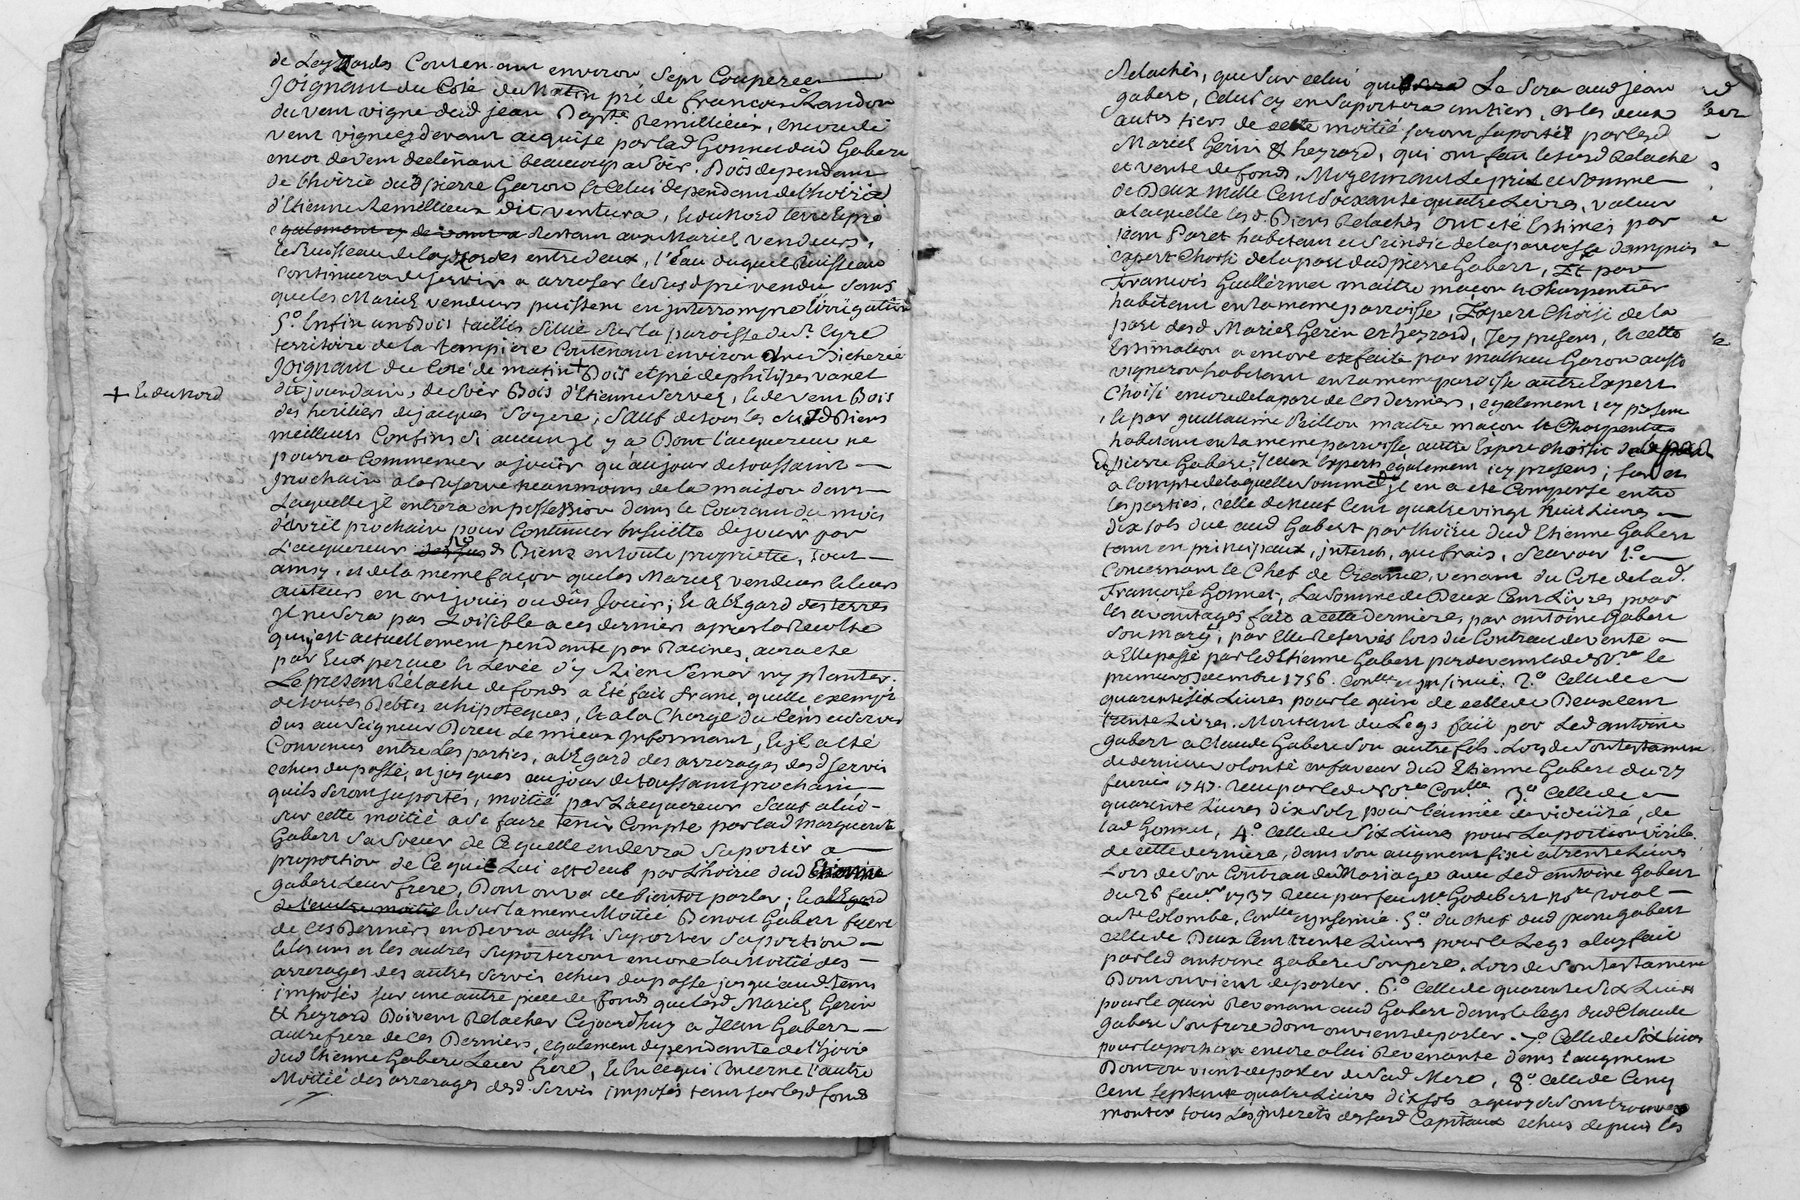 de Layzordes Contenant environ Sept Couperees
Joignant du Coté du Matin pré de francois Randon
du vent vigne dud jean Bapte Remillieux, encore de
vent vignes devant acquise par lad Gonnet dud Gabert
encor de vent declinant beaucoup a Soir. Bois dependant
de L'hoirie dud pierre Garon et Celui dependant de L'hoirie
d'Etienne Remillieux dit ventura, Et du Nord terre Et pré
egalement cy devant Restant aux Mariés vendeurs,
le Ruisseau de Layzordes entre deux, l'eau duquel Ruisseau
continuera de servir a arroser lesusd pré vendu Sans
que les Mariés vendeurs puissent en jnterrompre l'irrigation
5.º Enfin un Bois taillis Situé Sur la paroisse de St. Cyre
territoire de la tempiere Contenant environ une Bicherée
Joignant du Coté de matin + Bois et pré de philipes vanel
+ Et du Nord
dit jourdain, de Soir Bois d'Etienne Servez, Et de vent Bois
des heritiers de jacques Soyere; Sauf de tous les Susd Biens
meilleurs Confins Si aucuns jl y a Dont l'acquereur ne
pourra Commencer a jouir qu'au jour de toussaint
prochain a la Reserve neanmoins de la maison dans
Laquelle jl entrera en possession dans le Courant du mois
d'avril prochain pour Continuer ensuitte de jouir par
L'acquereur desd Biens en toute proprieté, tout
ainsy, et de la meme façon que les Mariés vendeurs et leurs
auteurs en ont jouis ou dûs Jouir; Et a l'Egard des terres
jl ne Sera pas Loisible a ces derniers apres la Recolte
qui est actuellement pendante par Racines, aura eté
par Eux perçue et Levée d'y Rien Semer ny planter.
Le present Relache de fonds a Eté fait franc, quitte exempt
de toutes Debtes et hipoteques, Et a la Charge du Cens et Servis
dus au Seigneur Direct Le mieux jnformant, Et jl a eté
Convenus entre Les parties, a l'Egard des arrerages desd Servis
echus du passé, et jusques au jour de toussaint prochain
quils Seront suportés, moitié par L'acquereur Sauf a lui
sur cette moitié a Se faire tenir Compte par lad Marguerite
Gabert Sa Soeur de Ce quelle en devra Suporter a
proportion de Ce qui Lui est deub par L'hoirie dud Etienne
gabert Leur frere, Dont on va de bientot parler; Et a l'Egard
de l'autre moitié Et sur la meme Moitié Benoit Gabert frere
de Ces Derniers en Devra aussi Suporter Sa portion
Et les uns et les autres Suporteront encore la Moitié des
arrerages des autres Servis echus du passé jusqu'aud. tems
imposés sur une autre piece de fond que lesd. Mariés Gerin
Et heyrard Doivent Relacher Cejourdhuy a Jean Gabert
autre frere de Ces Derniers, egalement dependante de L'hoirie
dud Etienne Gabert Leur frere, Et en ce qui Concerne l'autre
Moitié des arrerages desd. Servis imposés tant sur lesd fonds
Relachés, que sur celui qui Le Sera aud jean
gabert, Celui cy en Suportera un tiers, et les deux
autres tiers de cette moitié seront suportés par lesd
Mariés Gerin & heyrard, qui ont fait le susd Relache
et vente de fonds, Moyennant Le prix et Somme
de Deux Mille Cent Soixante quatre Livres, valeur
a laquelle lesd Biens Relachés Ont eté Estimés par
jean Paret habitant et Scindic de la paroisse d'ampuis
expert Choisi de la part dud pierre Gabert, Et par
Francois Guillermet maitre maçon Et Charpentier
habitant en la meme parroisse, Expert Choisi de la
part desd. Mariés Gerin et heyrard, Jcy presens, Et cette
Estimation a encore eté faite par mathieu Garon aussi
vigneron habitant en la meme paroisse autre Expert
Choisi encore de la part de Ces Derniers, egalement jcy present
, Et par guillaume Brillon maitre maçon Et Charpentier
habitant en la meme parroisse autre Expert choisi de la part
dud pierre Gabert; Jceux Experts egalement jcy presens; Sur et
a Compte de laquelle Somme jl en a eté Compensé entre
les parties, celle de Neuf Cent quatre vingt huit Livres
dix sols due aud Gabert par l'hoirie dud Etienne Gabert
tant en principaux, jnterets, que frais, Scavoir 1.º
Concernant le Chef de Créance, venant du Coté de lad.
Françoise Gonnet, La Somme de Deux Cent Livres pour
les avantages faits a cette derniere, par antoine Gabert
Son mary, par Elle Reservés lors du Contrat de vente
a Elle passé par led Etienne Gabert par devant led. Nore le
premier Decembre 1756. Conllé et jnsinué. 2.º Celle de
quarente Six Livres pour le quint de celle de Deux Cent
trente Livres. Montant du Legs fait par Led antoine
gabert a Claude Gabert Son autre fils. Lors de Son testament
de derniere volonté en faveur dud Etienne Gabert du 27
fevrier 1747. Recu par led. Nore Conllé 3.º Celle de
quarente Livres dix Sols pour l'année de viduité, de
lad Gonnet, 4.º Celle de Six Livres pour La portion virile
de cette derniere, dans Son augment fixé a trente Livres
Lors de Son Contrat de Mariage avec Led antoine Gabert
du 26 fevrer 1737 Recu par feu Me Godebert Nore Royal
a Ste Colombe, Conllé et jnsinué. 5.º du chef dud pierre gabert
celle de Deux Cent trente Livres pour le Legs a luy fait
par led antoine gabert Son pere. Lors de Son testament
Dont on vient de parler. 6.º Celle de quarente Six Livres
pour le quint Revenant aud Gabert dans le legs dud Claude
gabert Son frere dont on vient de parler. 7.º Celle de Six Livres
pour la portion encore a lui Revenante dans l'augment
Dont on vient de parler de Sad. Mere, 8.º Celle de Cinq
Cent Septante quatre Livres dix sols a quoy se Sont trouvés
monter tous Les jnterets desusd Capitaux echus depuis les